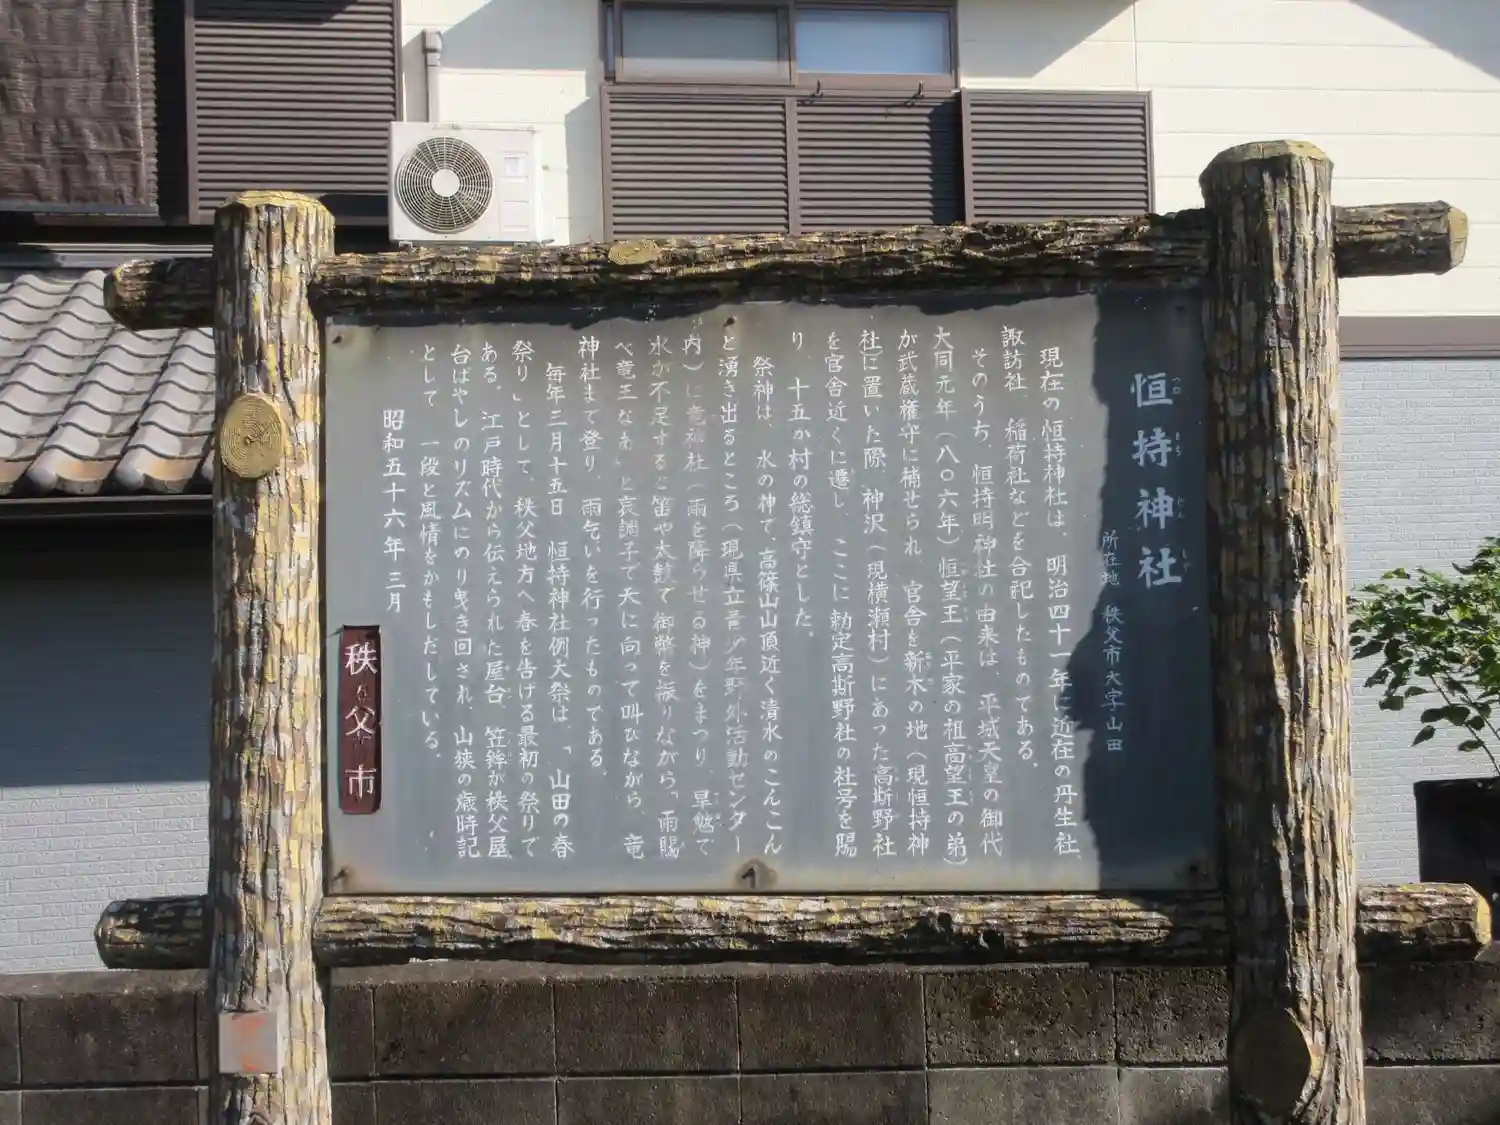 恒持神社
つねもちじんじゃ
所在地 秩父市大字山田
現在の恒持神社は、明治四十一年に近在の丹生社、
諏訪社、稲荷社などを合祀したものである。
そのうち、恒持明神社の由来は、平城天皇の御代
大同元年(八〇六年)恒望王(平家の祖高望王の弟)
が武蔵権守に補せられ、官舎を新木の地(現恒持神
社)に置いた際、神沢(現横瀬村)にあった高斯野社
を官舎近くに遷し、ここに勅定高斯野社の社号を賜
り、十五か村の総鎮守とした。
祭神は、水の神で、高篠山山頂近く清水のこんこん
と湧き出るところ(現県立青少年野外活動センター
内)に竜神社(雨を降らせる神)をまつり、旱愁で
水が不足すると笛や太鼓で御幣を振りながら、「雨賜
べ竜王なあ」と哀調子で天に向って叫びながら、竜
神社まで登り、雨乞いを行ったものである。
毎年三月十五日、恒持神社例大祭は、「山田の春
祭り」として、秩父地方へ春を告げる最初の祭りで
ある。江戸時代から伝えられた屋台、笠鉾が秩父屋
台ばやしのリズムにのり曳き回され、山狭の歳時記
として、一段と風情をかもしだしている。
昭和五十六年三月
秩父市